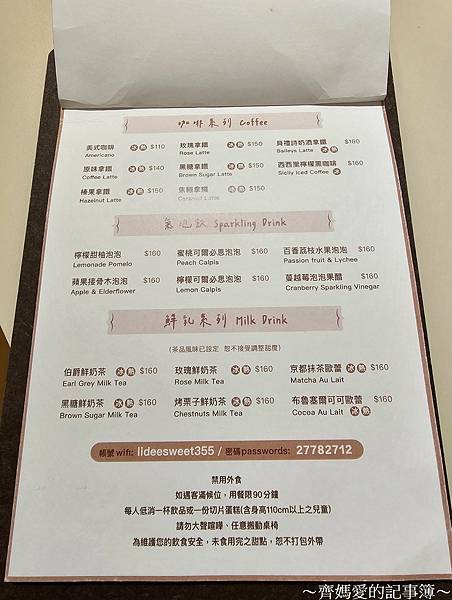 咖啡系列 Coffee
美式咖啡 冰 熱 $110 玫瑰拿鐵 冰 熱 $150 貝禮詩奶酒拿鐵 $160
Americano Rose Latte Baileys Latte 冰 熱
原味拿鐵 冰 熱 $140 黑糖拿鐵 冰 熱 $150 西西里檸檬黑咖啡 $160
Coffee Latte Brown Sugar Latte Sicily Iced Coffee 冰
榛果拿鐵 冰 熱 $150 焦糖拿鐵 冰 熱 $150
Hazelnut Latte Caramel Latte
氣泡飲 Sparkling Drink
檸檬甜柚泡泡 $160 蜜桃可爾必思泡泡 $160 百香荔枝水果泡泡 $160
Lemonade Pomelo Peach Calpis Passion fruit & Lychee
蘋果接骨木泡泡 $160 檸檬可爾必思泡泡 $160 蔓越莓泡泡果醋 $160
Apple & Elderflower Lemon Calpis Cranberry Sparkling Vinegar
鮮乳系列 Milk Drink
(茶品風味已設定 恕不接受調整甜度)
伯爵鮮奶茶 冰 熱 $160 玫瑰鮮奶茶 冰 熱 $160 京都抹茶歐蕾 冰 熱 $160
Earl Grey Milk Tea Rose Milk Tea Matcha Au Lait
黑糖鮮奶茶 冰 熱 $160 烤栗子鮮奶茶 冰 熱 $160 布魯塞爾可可歐蕾 $160
Brown Sugar Milk Tea Chestnuts Milk Tea Cocoa Au Lait 冰 熱
帳號 wifi: lideesweet355 / 密碼 passwords: 27782712
禁用外食
如遇客滿候位，用餐限90分鐘
每人低消一杯飲品或一份切片蛋糕(含身高110cm以上之兒童)
請勿大聲喧嘩、任意搬動桌椅
為維護您的飲食安全，未食用完之甜點，恕不打包外帶
～齊媽愛的記事簿～